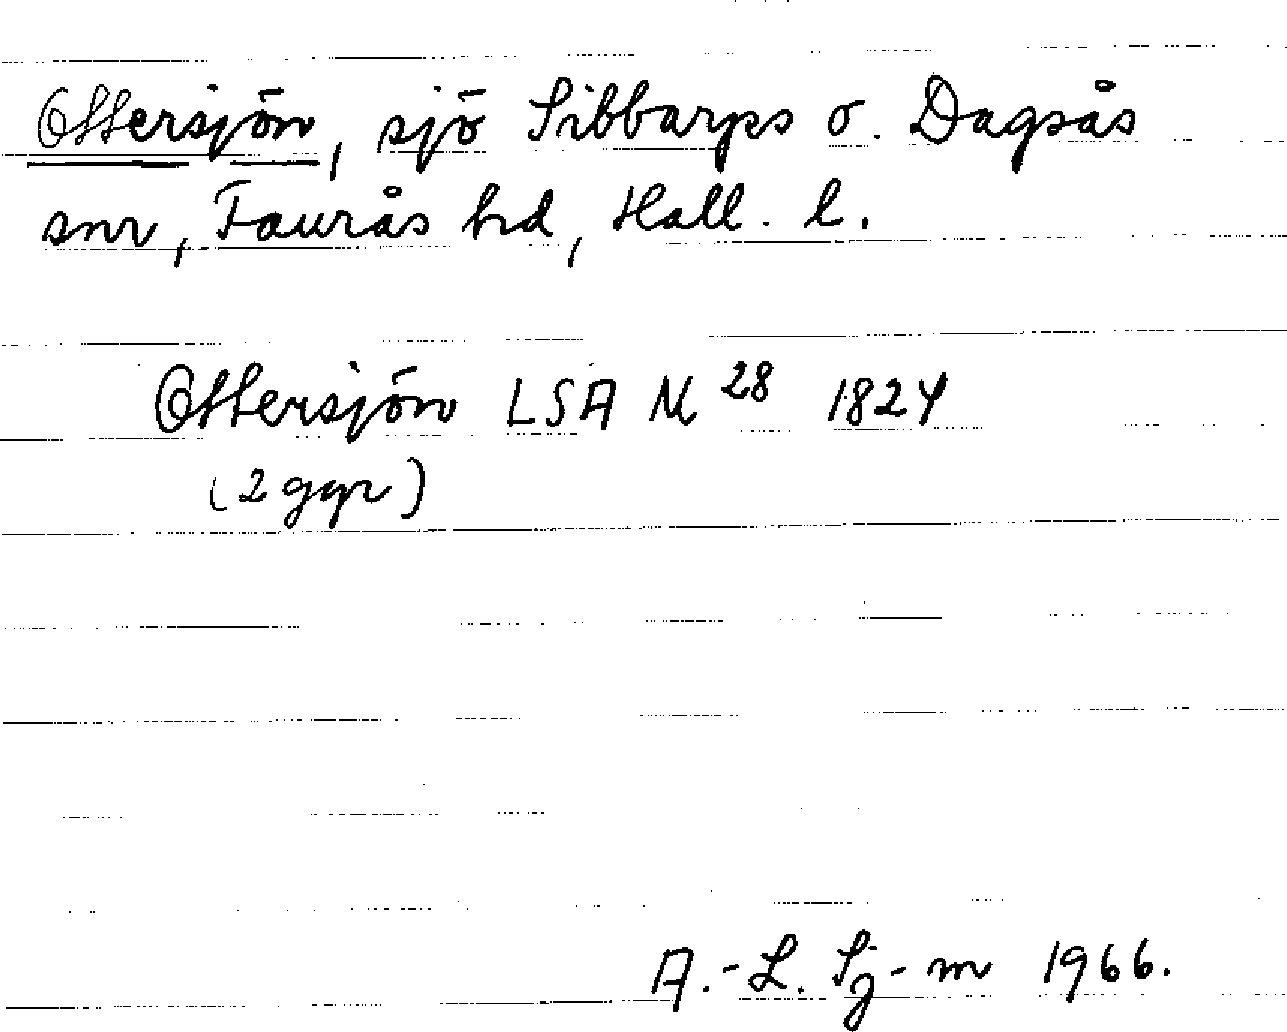 Ottersjön, sjö Sibbarps o. Dagsås
snr, Faurås hd, Hall. l.
Ottersjön LSA N 28 1824
(2 ggr)
A.-L. Sj-m 1966.